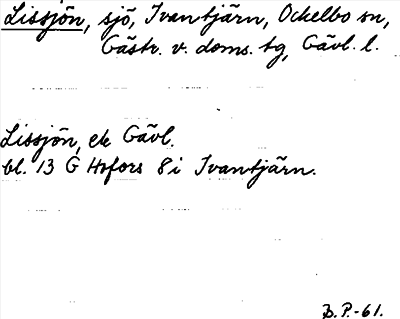 Lissjön, sjö, Ivantjärn, Ockelbo sn,
Gästr. v. doms. tg, Gävl. l.
Lissjön, ek Gävl.
bl. 13 G Hofors 8 i Ivantjärn.
B. P.-61.